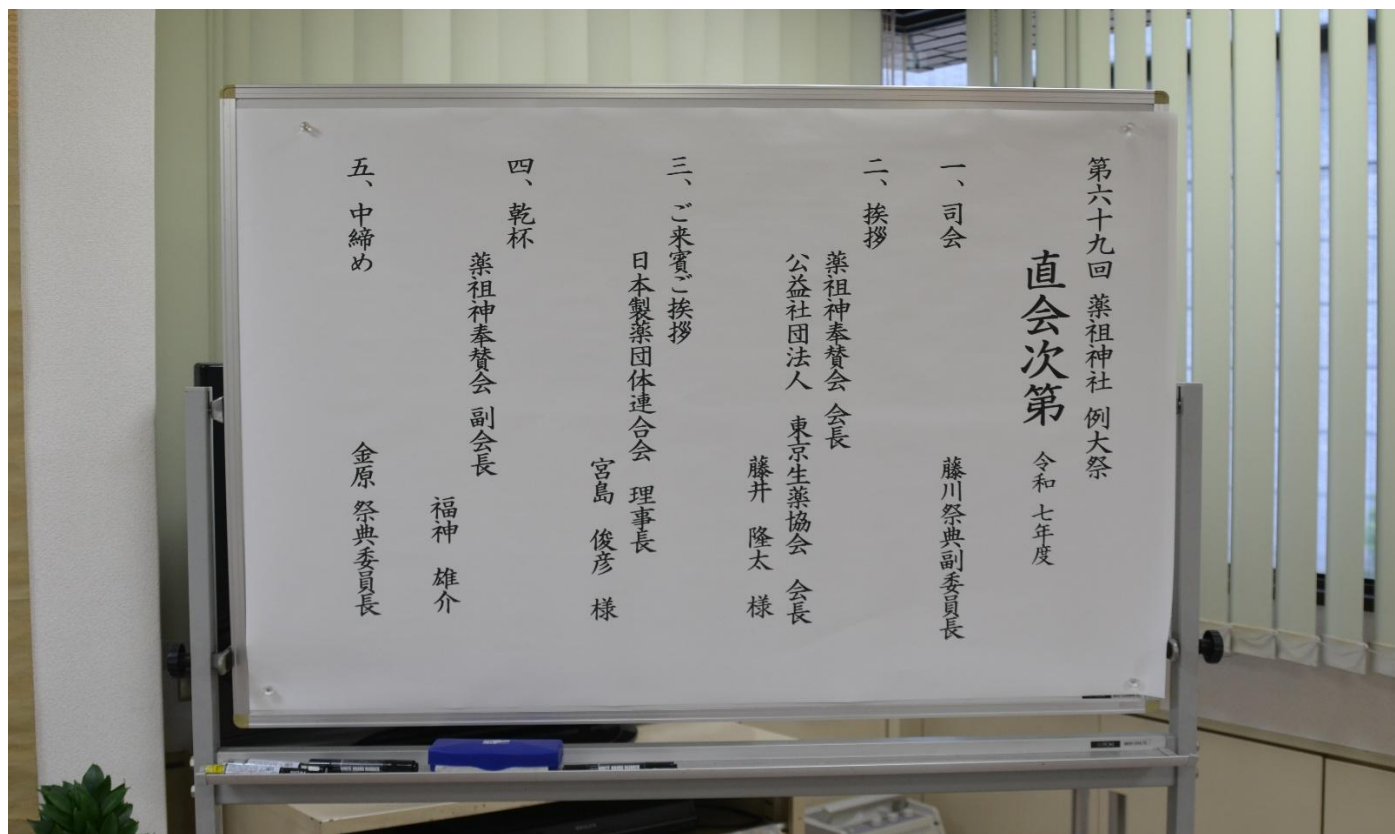 第六十九回 薬祖神社 例大祭
直会次第 令和 七年度
一、司会 藤川祭典副委員長
二、挨拶
薬祖神奉賛会 会長
公益社団法人 東京生薬協会 会長
藤井 隆太 様
三、ご来賓ご挨拶
日本製薬団体連合会 理事長
宮島 俊彦 様
四、乾杯
薬祖神奉賛会 副会長
福神 雄介
五、中締め 金原 祭典委員長